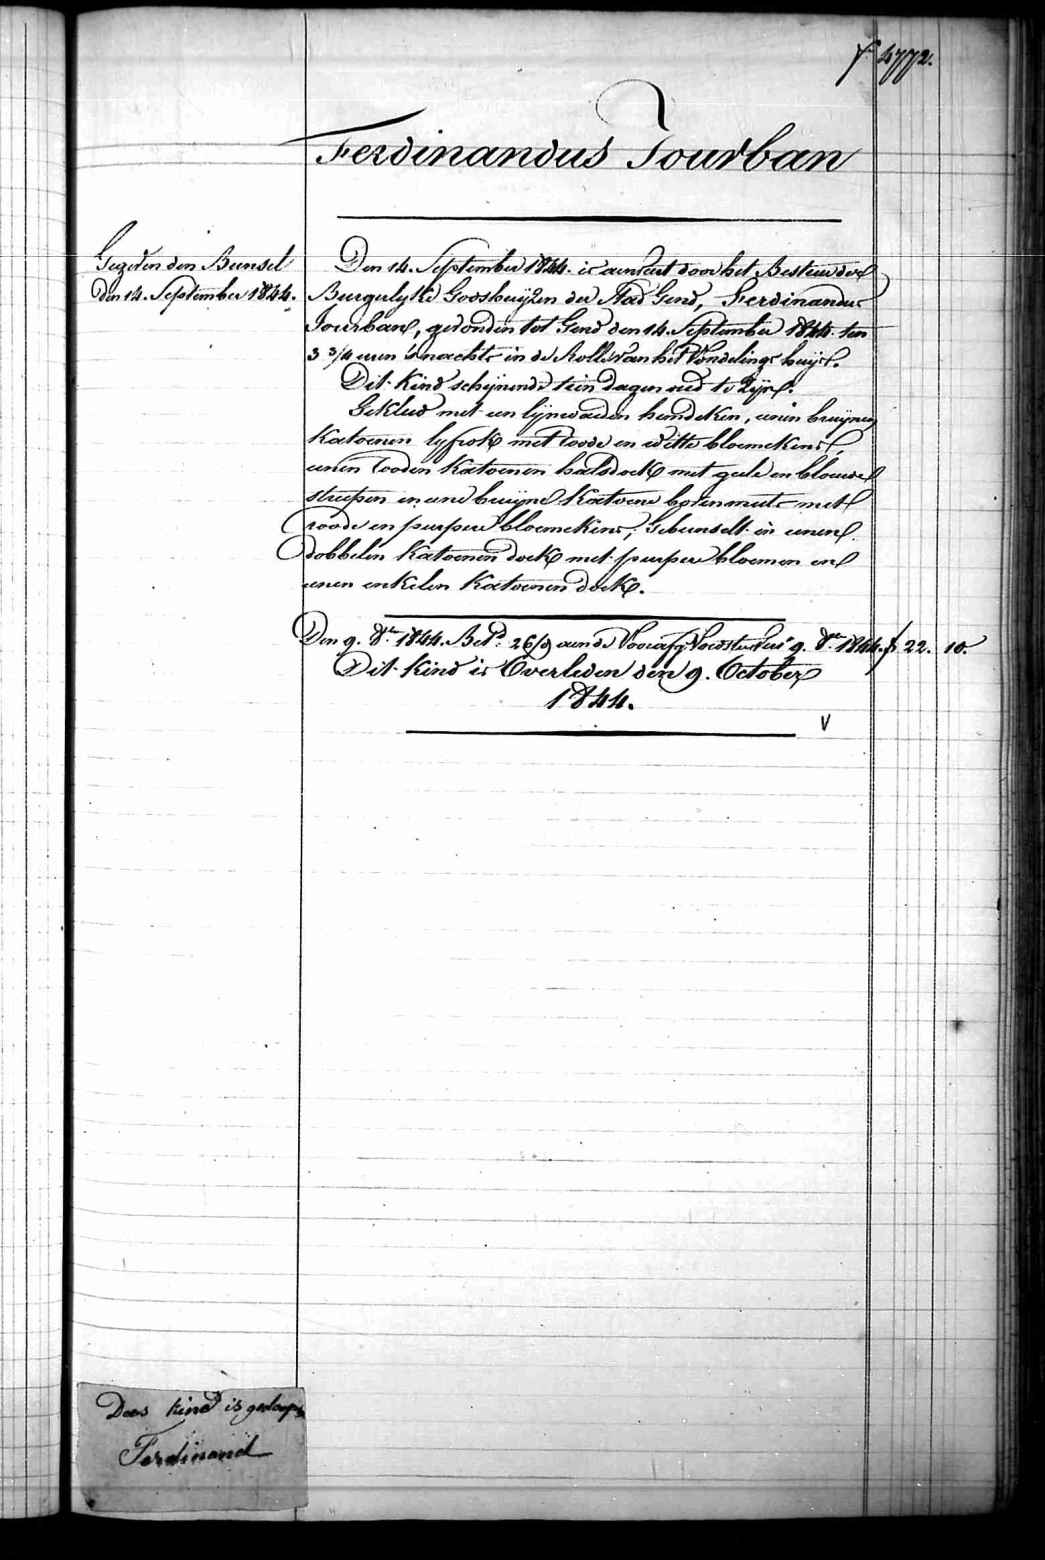 f° 4772.
Ferdinandus Tourban
Gezeten den Bunsel
den 14. September 1844.
Den 14. September 1844. is aenveirt door het Bestuur der
Burgerlyke Godshuijzen der Stad Gend, Ferdinandus
Tourban, gevonden tot Gend den 14. September 1844. ten
3 3/4 uren 's nachts in de Rolle van het Vondelings huijs.
Dit Kind schijnende tien dagen oud te Zijn.
Gekleed met een lijnwaeden hemdeken, eenen bruijnen
Katoenen lyfrok met roode en witte bloemekens,
eenen rooden Katoenen halsdoek met geele en blouwe
streepen en eene bruijne Katoene boven muts met
roode en purpere bloemekens; Gebunselt in eenen
dobbelen Katoenen doek met purpere bloemen en
eenen enkelen Katoenen doek.
Den 9. 8er 1844. Betd. 26/9 aen de Voedster 9. 8er 1844. f 22. 10
Dit Kind is Overleden den 9. October
1844.
V
Dees kind is gedoopt
Ferdinand